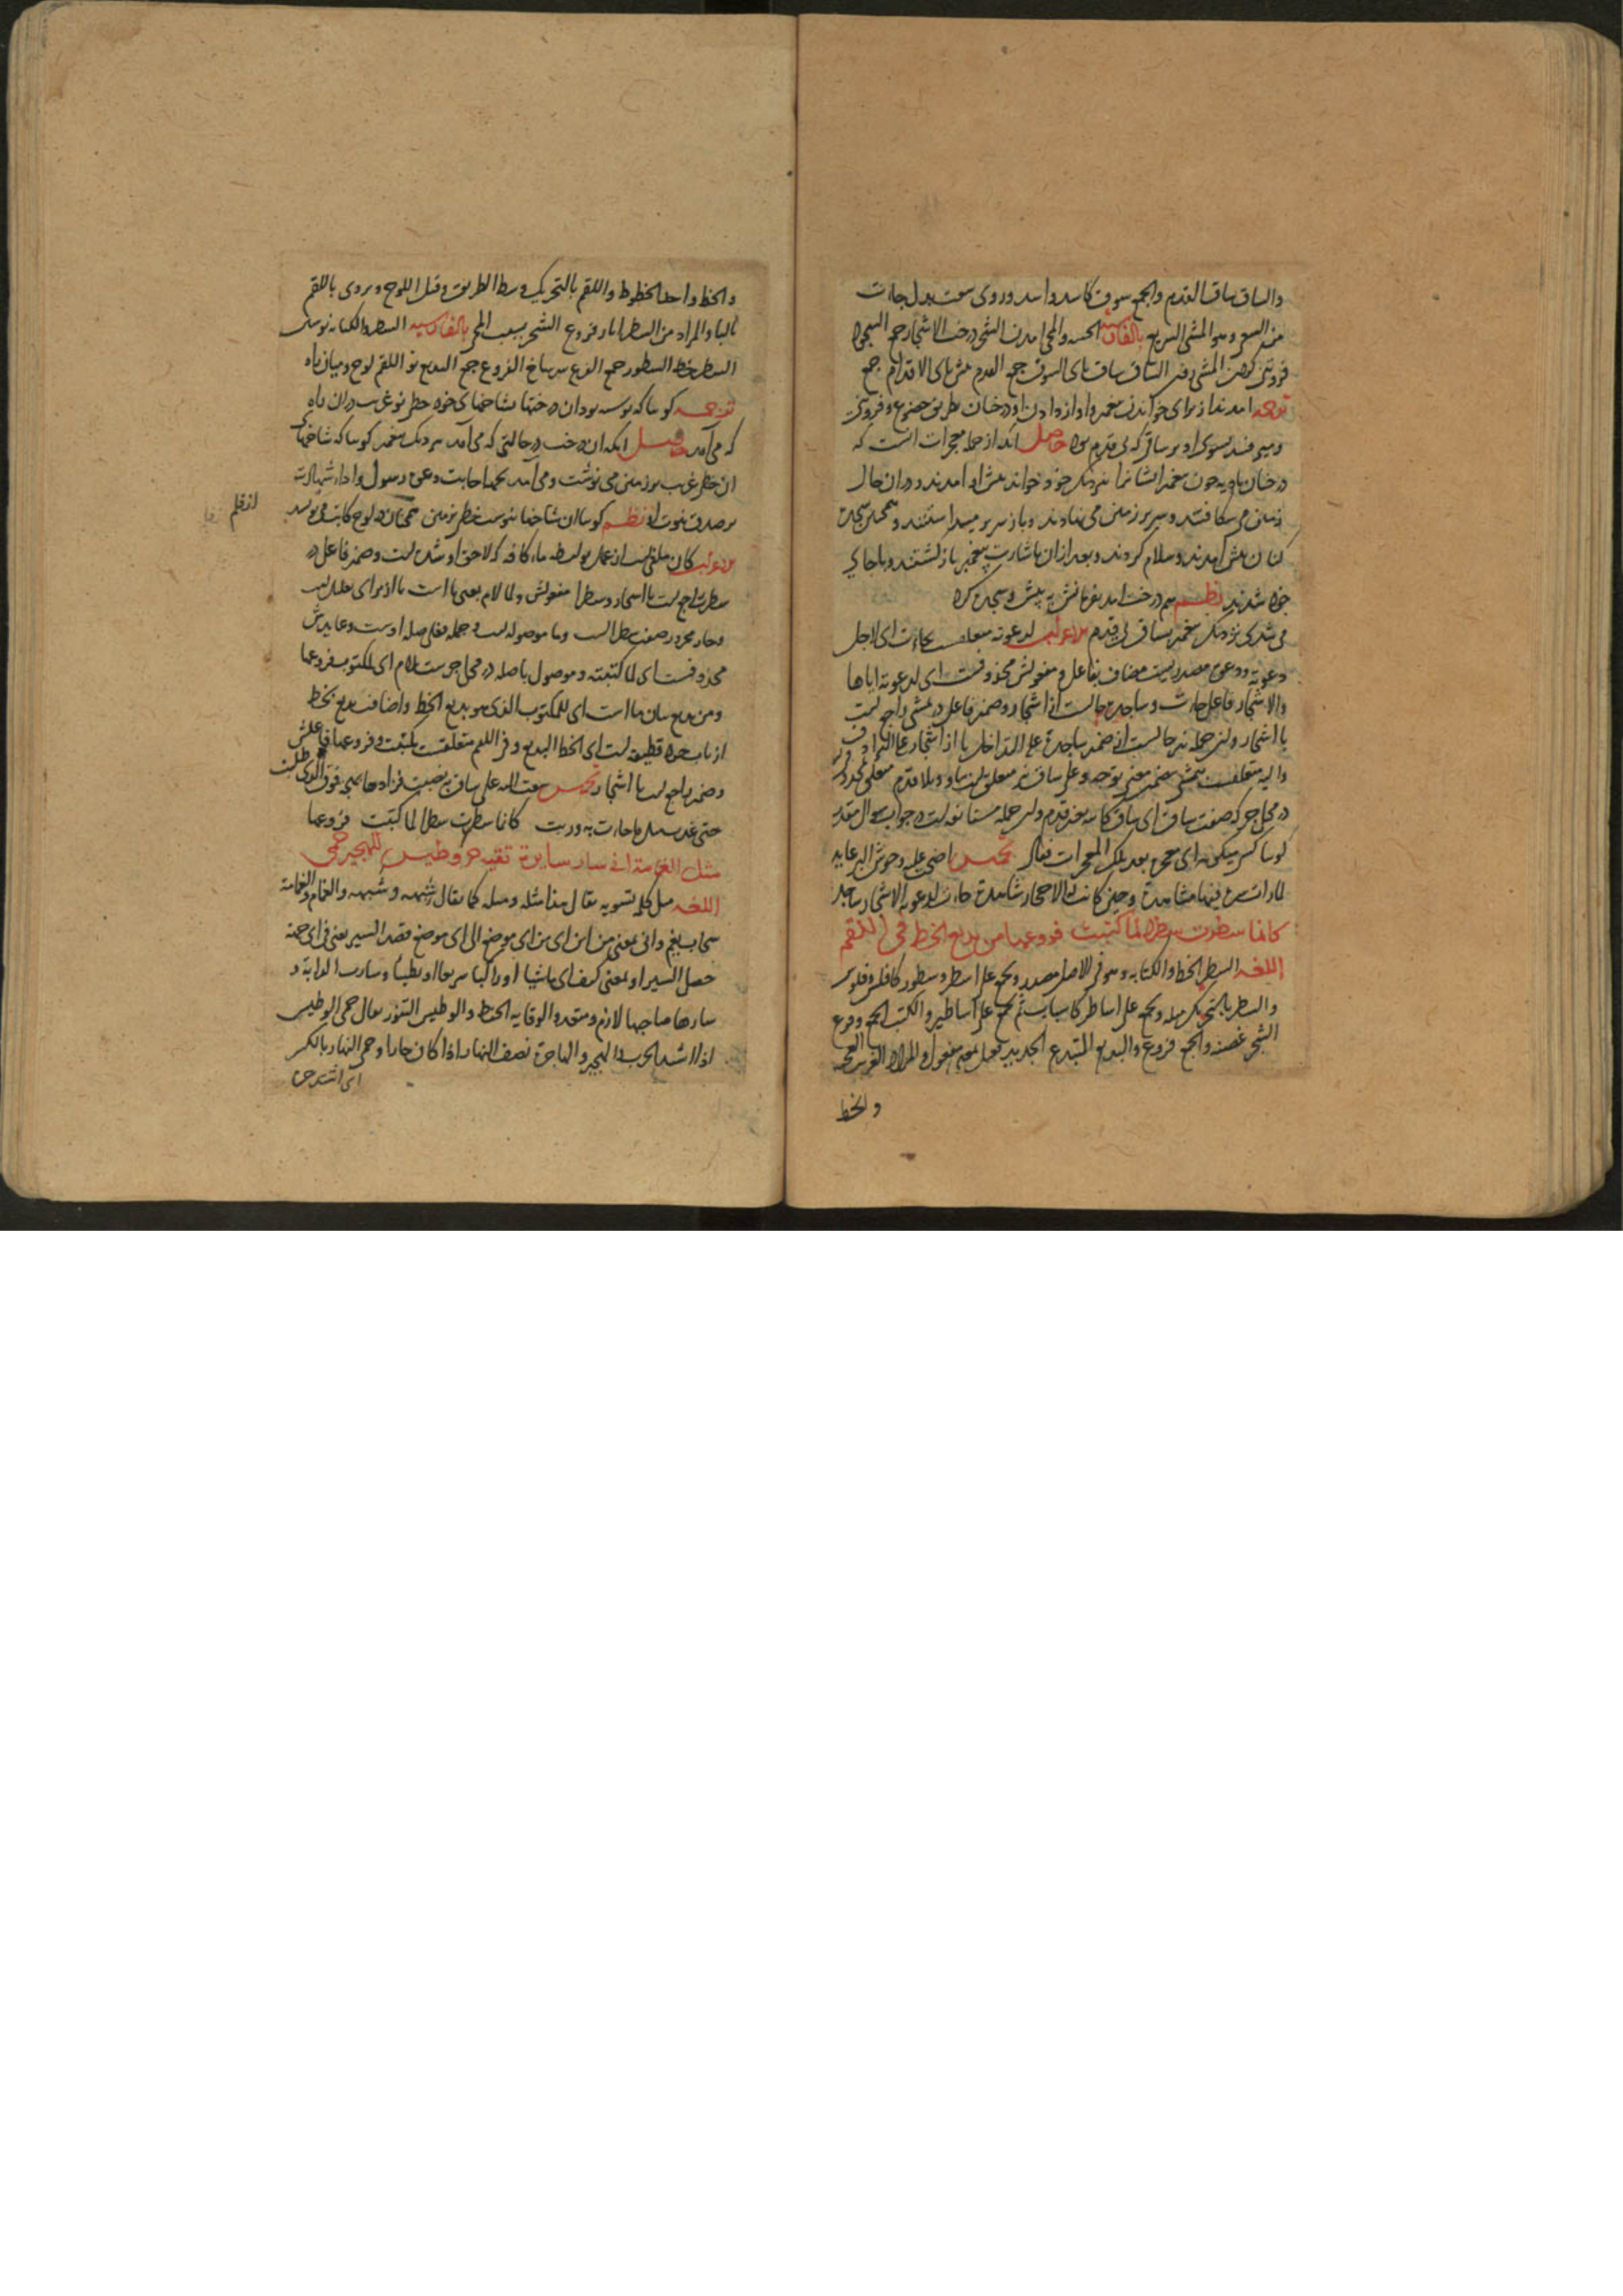 والساق ساق القدم والجمع سوق كاسد واسد وروی سعت بدل جاءت
من السعی وهو المشی السریع بالفارسیه والمجی امدن الشی درخت الاشجار جمع السجود
فروتنی کردن المشی رفتن الساق ساق پای السوق جمع القدم پای الاقدام جمع
ترجمه امدند از برای خواندن پیغمبر و اواز دادن او درختان بطریق خضوع و فروتنی
و میرفتند بسوی او بر ساقی که بی قدم بود حاصل انکه از جمله معجزات انست که
درختان بادیه چون پیغمبر ایشانرا بنزدیک خود خواند پیش او امدند و در ان حال
زمین می شکافتند و سر بر زمین می نهادند و باز سر بر میداشتند و همچنین سجده
کنان پیش امدند و سلام کردند و بعد ازان باشارت پیغمبر باز گشتند و باجای
خود شدند نظم هم درخت امد بفرمانش به پیش و سجده کرد
می شدی نزدیک پیغمبر بساق بی قدم الاعراب لدعوته متعلقست بجاءت ای لاجل
دعوته و دعوی مصدریست مضاف بفاعل و مفعولش محذوفست ای لدعوته ایاها
والاشجار فاعل جاءت و ساجدة حالست از اشجار و ضمیر فاعل در تمشی راجع است
با اشجار و این جمله نیز حالست از ضمیر ساجدة علی التداخل یا از اشجار علی الترادف
والیه متعلقست بتمشی بتضمین معنی توجه و علی ساق نیز متعلق است باو و بلا قدم متعلق بمحذوف
در محل جر که صفت ساق ای ساق کاینة بغیر قدم و این جمله مستانفه است در جواب سوال مقدر
کویا کسی میکوید ای معجزة بعد تلک المعجزات فقال تخمیس اضحی علیه وحوش البر عایدة
لما رات من فیها مشاهدة وحین کانت له الاحجار شاهدة جاءت لدعوته الاشجار ساجدة
کانما سطرت سطرا لما کتبت فروعها من بدیع الخط فی اللقم
اللغه السطر الخط والکتابه وهو فی الاصل مصدر ویجمع علی اسطر وسطور کافلس وفلوس
والسطر بالتحریک مثله ویجمع علی اساطر کاسباب ثم یجمع علی اساطیر والکتب الجمع وفرع
الشجر غصنه والجمع فروع والبدیع المبتدع الجدید فعیل بمعنی مفعول والمراد الغریب العجیب
والخط
والخط واحد الخطوط واللقم بالتحریک وسط الطریق وقیل اللوح ویروی باللقم
بالباء والمراد من السطر اثار فروع الشجر بسبب المجی بالفارسیه السطر والکتابه نوشتن
السطر خط السطور جمع الفرع سر شاخ الفروع جمع البدیع نو اللقم لوح و میان راه
ترجمه کویا که نوشته بود ان درختها بشاخهای خود خط نو غریب در ان راه
که می آمد حاصل انکه ان درخت در حالتی که می آمد نزدیک پیغمبر کویا که شاخها
ان خط غریب بر زمین می نوشت و می آمد بجهة اجابت دعوی رسول و اداء شهادت
بر صدق نبوت او نظم کویا ان شاخها نوشت خط بر زمین همچنان در لوح کاتب می نویسد
از قلم
الاعراب کان ملغی است از عمل بواسطه ماء کافه که لاحق او شده است و ضمیر فاعل در
سطرت راجع است با اشجار و سطرا مفعولش و لما لام بمعنی با است یا از برای تعلیل است
و جار مجرور صفت سطرا است و ما موصوله است و جمله فعلی صله اوست و عایدش
محذوفست ای لما کتبته و موصول باصله در محل جر ست بلام ای للمکتوب فروعها
و من بدیع بیان ما است ای للمکتوب الذی هو بدیع الخط و اضافت بدیع بخط
از باب جرد قطیفه است ای الخط البدیع و فی اللقم متعلقست بکتبت و فروعها فاعلش
و ضمیر راجع است با اشجار تخمیس سعت الیه علی ساق به نصبت فزادها بهجة فوق الذی طلبت
حتی غدت مثل ما جاءت به وربت کانما سطرت سطرا لما کتبت فروعها
مثل الغمامة انی سار سایرة تقیه حر وطیس للهجیر حمی
اللغه مثل کلمه تسویه یقال هذا مثله ومثله کما یقال شبهه وشبهه والغمام والغمامة
سحاب بغیم وانی بمعنی من این ای من ای موضع الی ای موضع قصد السیر یعنی فی ای جهة
حصل السیر او بمعنی کیف ای ماشیا او راکبا سریعا او بطیئا وسارت الدابة و
سارها صاحبها لازم ومتعد والوقایه الحفظ والوطیس التنور یقال حمی الوطیس
اذا اشتد الحرب والهجیر والهاجرة نصف النهار اذا کان حارا وحمی النهار بالکسر
ای اشتد حره